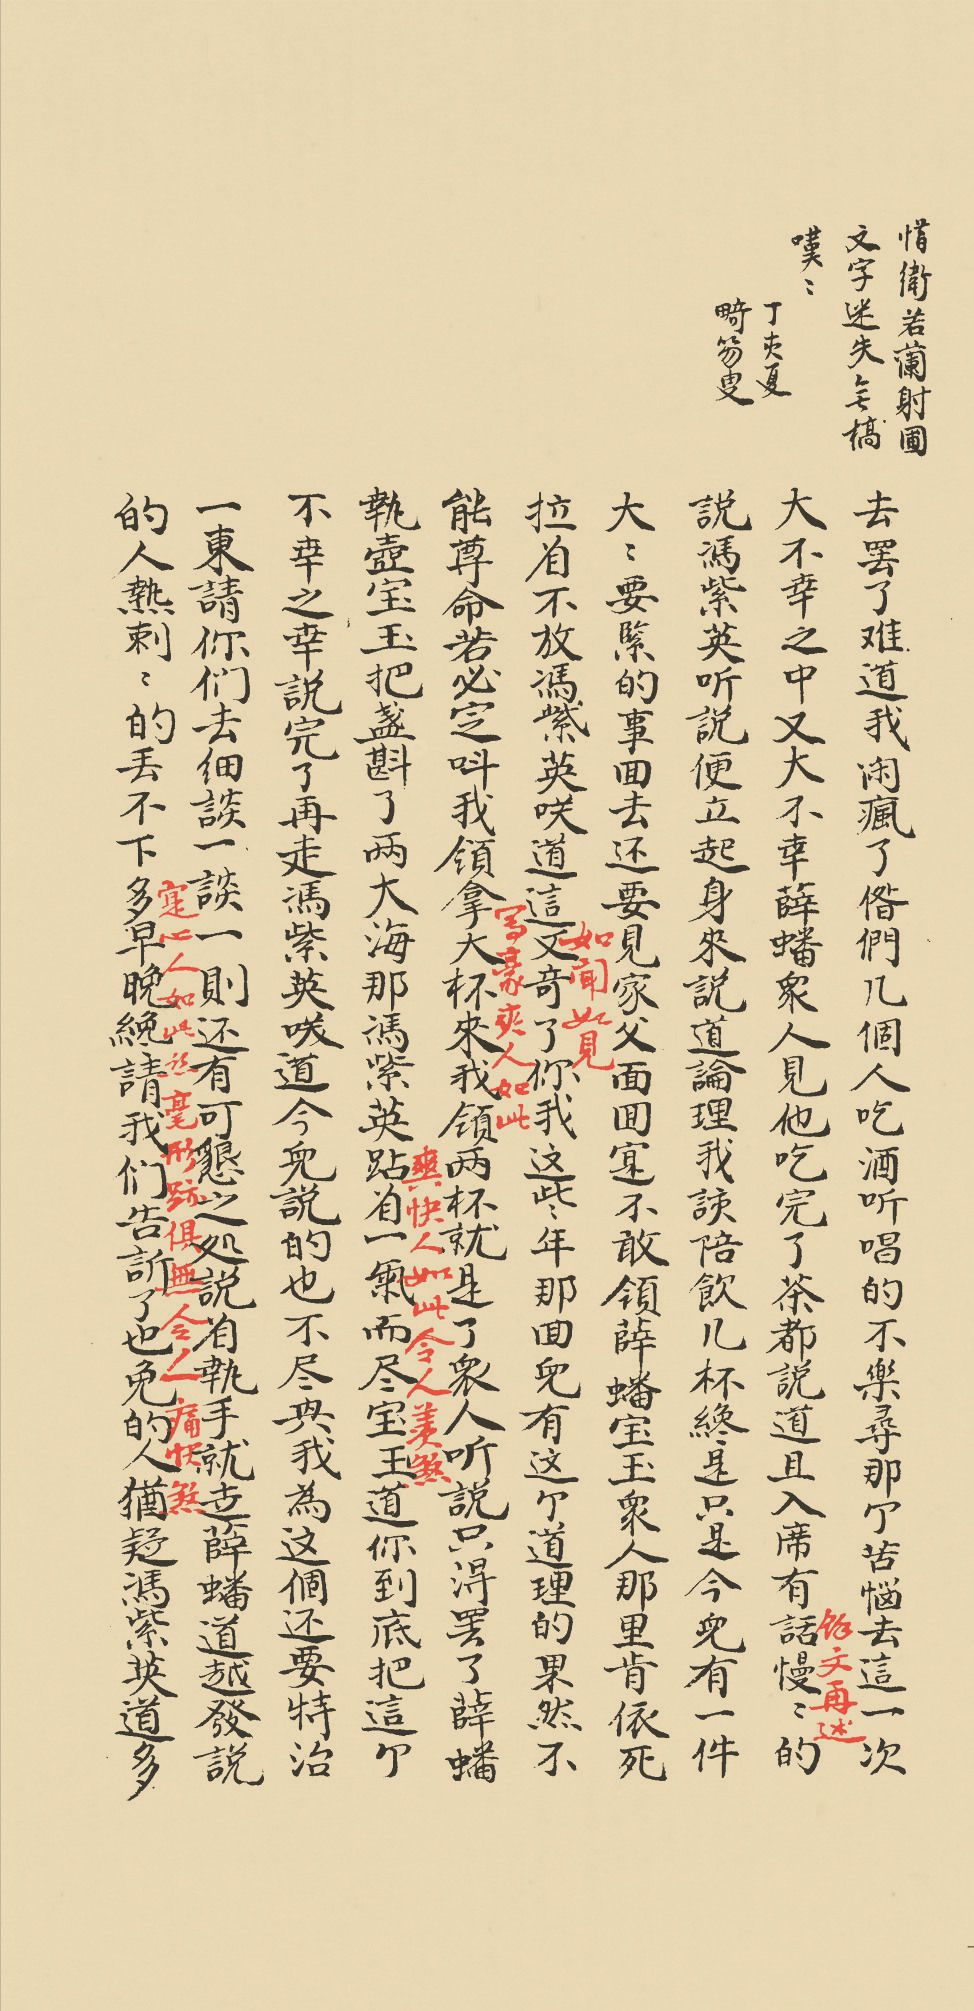 惜衛若蘭射圃
文字迷失無稿
嘆〻
丁亥夏
畸笏叟
去罢了难道我闲瘋了偺們几個人吃酒听唱的不樂尋那个苦惱去這一次
大不幸之中又大不幸薛蟠衆人見他吃完了茶都説道且入席有話慢〻的
餘文再述
説馮紫英听説便立起身來説道論理我該陪飲几杯終是只是今兒有一件
大〻要緊的事回去还要見家父面囬寔不敢領薛蟠宝玉衆人那里肯依死
如聞如見
拉着不放馮紫英咲道這又奇了你我这些年那回兒有这个道理的果然不
写豪爽人如此
能尊命若必定呌我領拿大杯來我領両杯就是了衆人听説只淂罢了薛蟠
爽快人如此令人羡煞
執壺宝玉把盞斟了両大海那馮紫英跕着一氣而尽宝玉道你到底把這个
不幸之幸説完了再走馮紫英咲道今兒説的也不尽興我為这個还要特治
一東請你们去细談一談一則还有可懇之処説着執手就走薛蟠道越發説
寔心人如此絲毫形跡俱無令人痛快煞
的人熱剌〻的丢不下多早晚纔請我们告訴了也免的人猶疑馮紫英道多